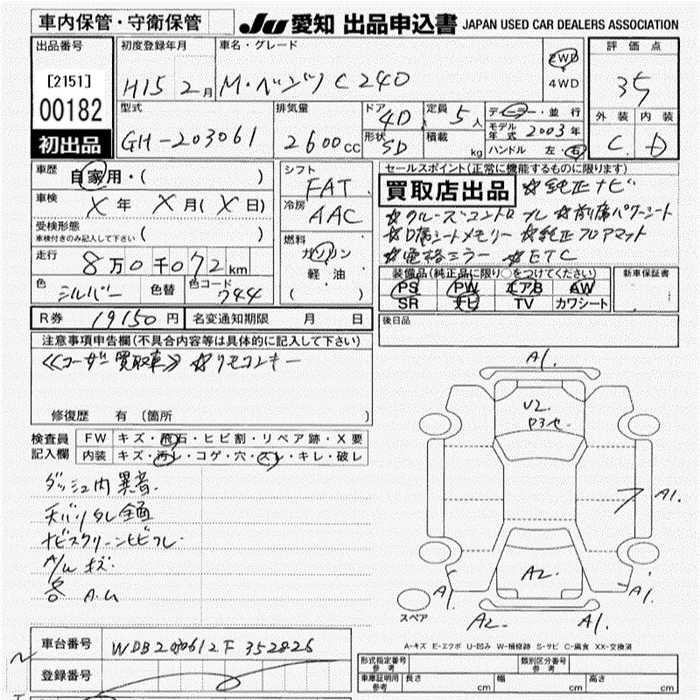 車内保管・守衛保管
JU 愛知 出品申込書 JAPAN USED CAR DEALERS ASSOCIATION
出品番号
[2151]
00182
初出品
初度登録年月
H15 2月
車名・グレード
M・ベンツ C240
2WD
4WD
評価点
3.5
外装 内装
C D
型式
GH-203061
排気量
2600cc
ドア 4D
形状 SD
定員 5人
積載 kg
ディーラー・並行
モデル年式 2003年
ハンドル 左・右
車歴 自家用・( )
車検 X年 X月(X日)
受検形態
車検付きのみ記入して下さい ( )
走行 8万0千072km
色 シルバー 色替 色コード 744
シフト FAT
冷房 AAC
燃料
ガソリン
軽油
( )
セールスポイント(正常に機能するものに限ります)
買取店出品 ☆純正ナビ
☆クルーズコントロール ☆前席パワーシート
☆D席シートメモリー ☆純正フロアマット
☆電格ミラー ☆ETC
装備品(純正品に限り○をつけてください)
PS PW エアB AW
SR ナビ TV カワシート
新車保証書
R券 19150円 名変通知期限 月 日
後日品
注意事項申告欄(不具合内容等は具体的に記入して下さい)
《ユーザー買取車》 ☆リモコンキー
修復歴 有 (箇所 )
検査員
記入欄
FW キズ・飛石・ヒビ割・リペア跡・X要
内装 キズ・汚レ・コゲ・穴・スレ・キレ・破レ
ダッシュ内異音
天バリタレ全面
ナビスクリーンヒビワレ
A/Wキズ
各A.U
A1.
U2.
A1.
A2.
A1.
A1.
A2.
A1.
スペア
A-キズ E-エクボ U-凹み W-補修跡 S-サビ C-腐食 XX-交換済
車台番号 WDB2030612F352826
登録番号
形式指定番号
参考
類別区分番号
参考
車庫証明用
参考
長さ cm 幅 cm 高さ cm